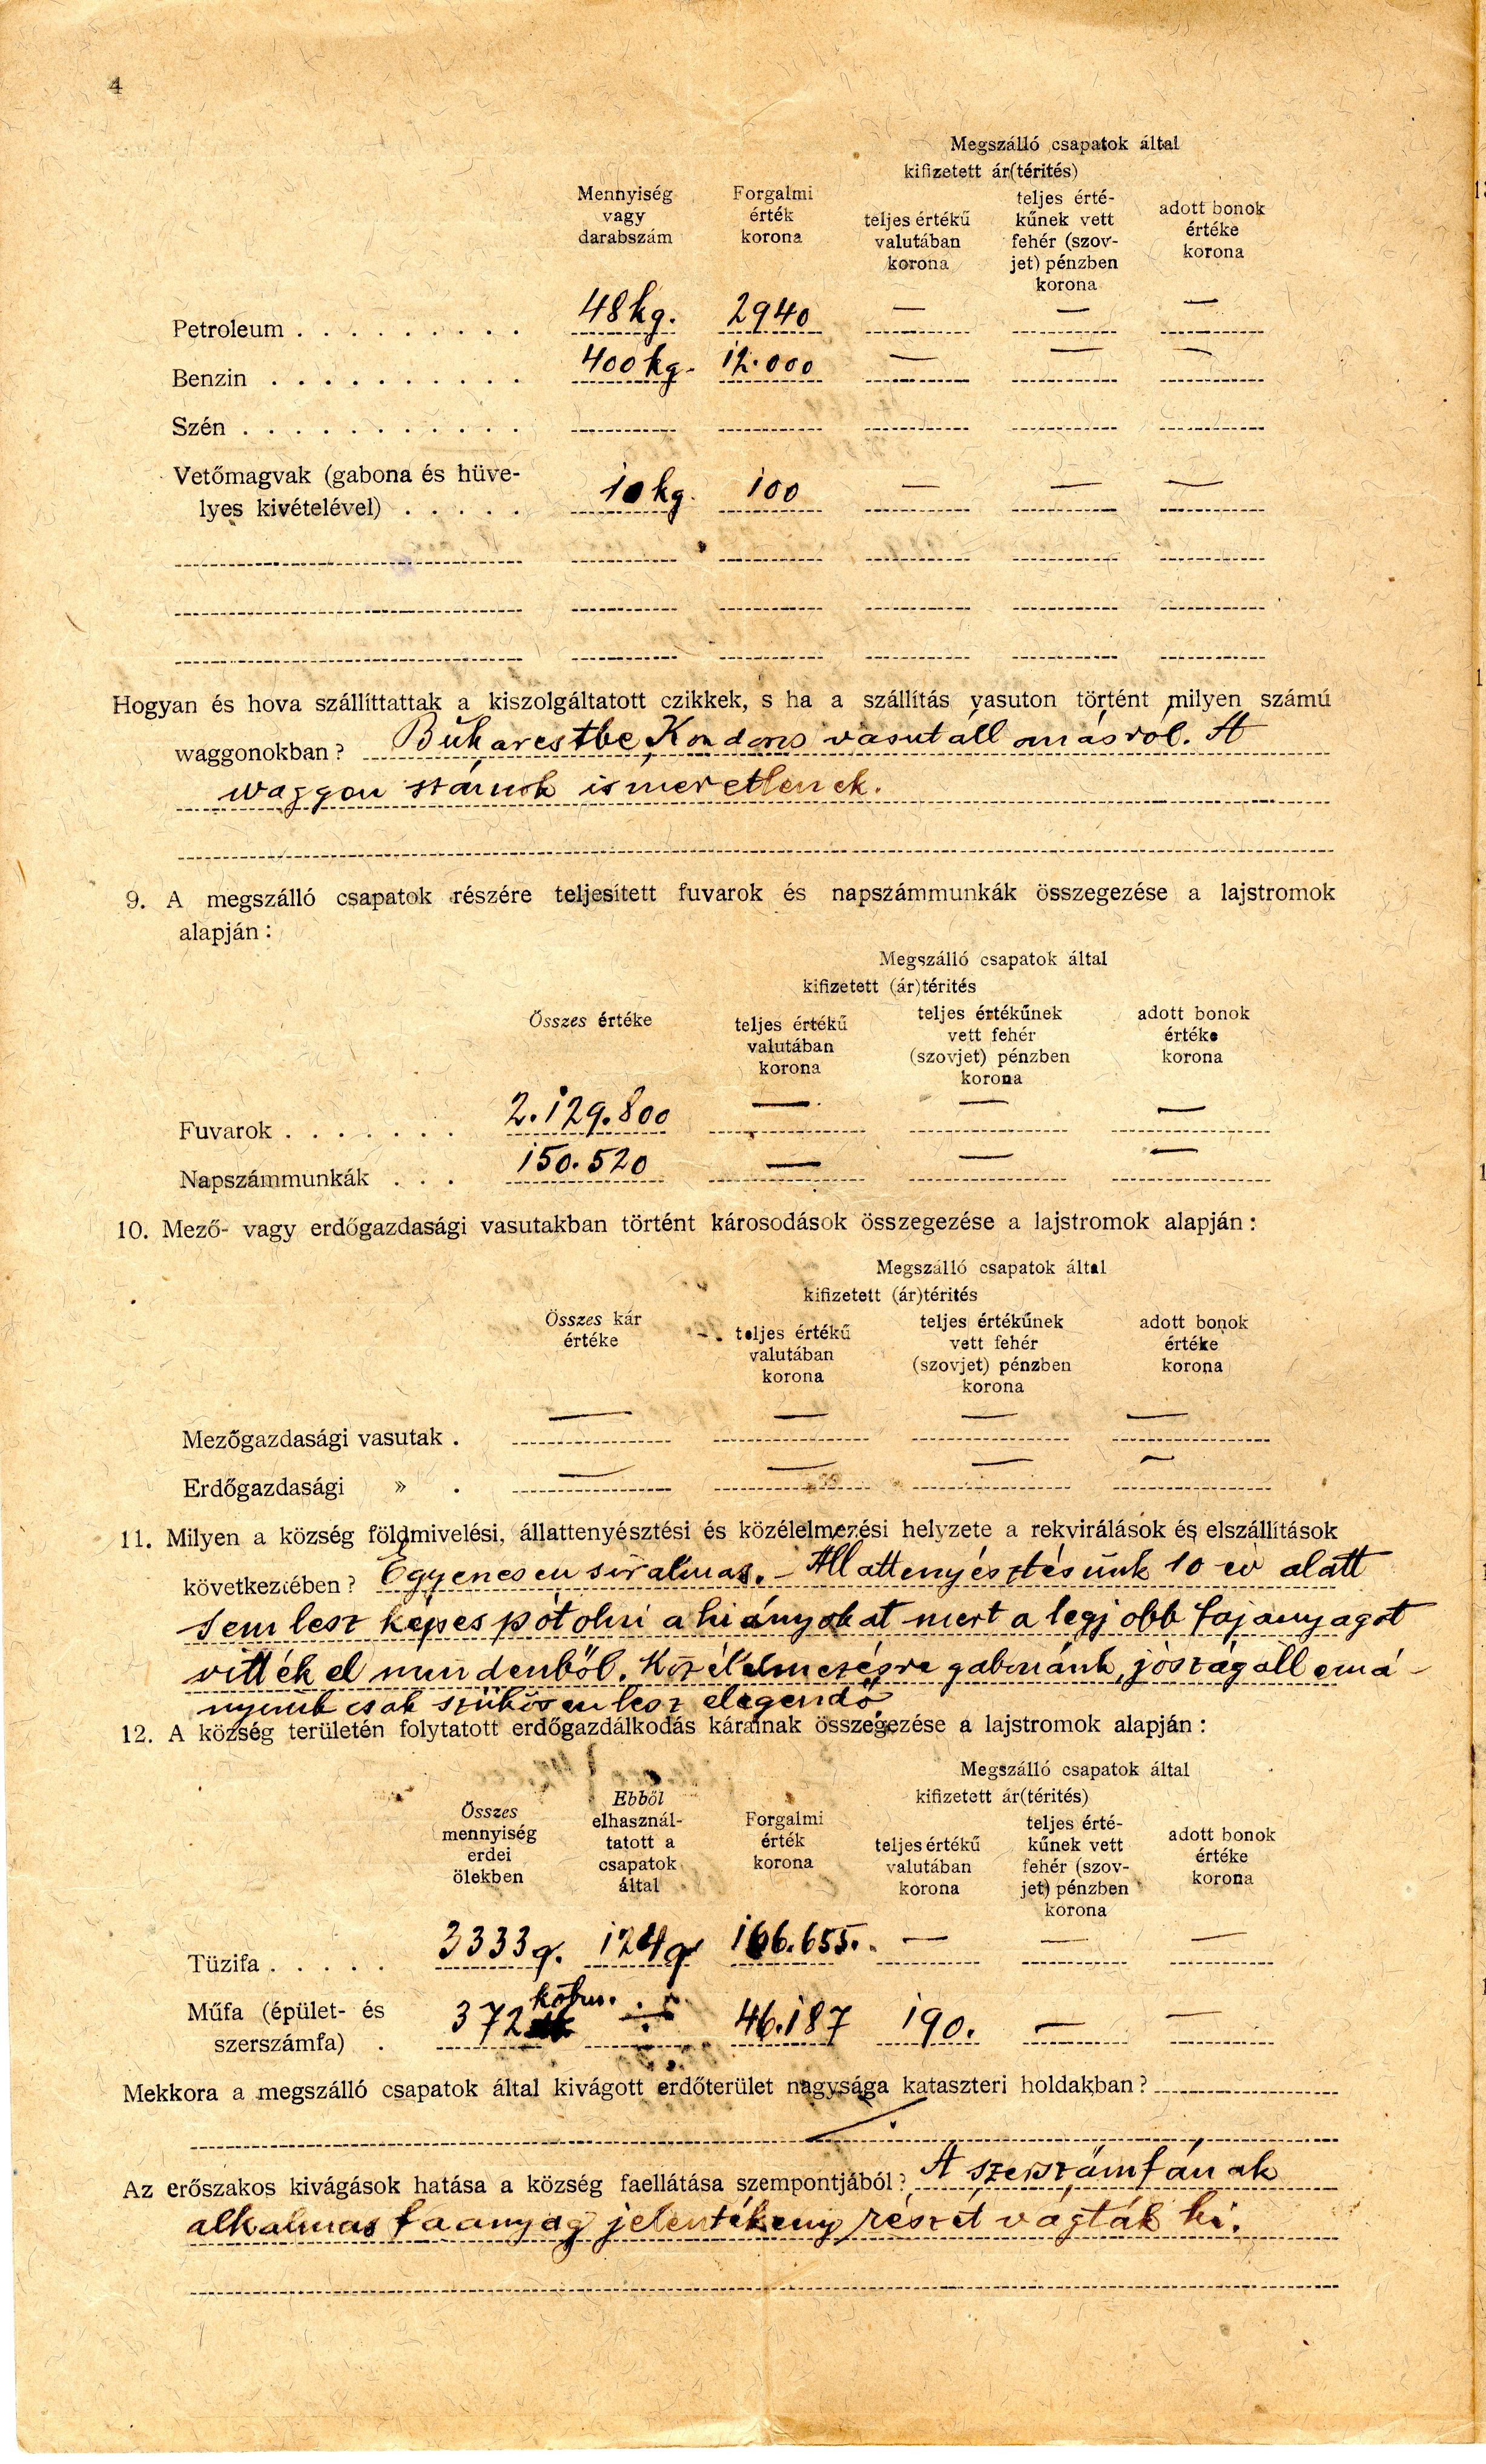 4
Megszálló csapatok által
kifizetett ár(térités)
Mennyiség vagy darabszám
Forgalmi érték korona
teljes értékű valutában korona
teljes érté-kűnek vett fehér (szov-jet) pénzben korona
adott bonok értéke korona
Petroleum . . . . . . . . . 48 kg. 2940 — — —
Benzin . . . . . . . . . . 400 kg. 12.000 — — —
Szén . . . . . . . . . . .
Vetőmagvak (gabona és hüve-
lyes kivételével) . . . . . 10 kg. 100 — — —
Hogyan és hova szállíttattak a kiszolgáltatott czikkek, s ha a szállítás vasuton történt milyen számú
waggonokban? Bukarestbe, Kondoros vasutállomásról. A
waggon számok ismeretlenek.
9. A megszálló csapatok részére teljesített fuvarok és napszámmunkák összegezése a lajstromok
alapján:
Megszálló csapatok által
kifizetett (ár)térités
Összes értéke
teljes értékű valutában korona
teljes értékűnek vett fehér (szovjet) pénzben korona
adott bonok értéke korona
Fuvarok . . . . . . . 2.129.800 — — —
Napszámmunkák . . . 150.520 — — —
10. Mező- vagy erdőgazdasági vasutakban történt károsodások összegezése a lajstromok alapján:
Megszálló csapatok által
kifizetett (ár)térités
Összes kár értéke
teljes értékű valutában korona
teljes értékűnek vett fehér (szovjet) pénzben korona
adott bonok értéke korona
Mezőgazdasági vasutak . — — — —
Erdőgazdasági » . — — — —
11. Milyen a község földmivelési, állattenyésztési és közélelmezési helyzete a rekvirálások és elszállítások
következtében? Egyenesen siralmas. – Állattenyésztésünk 10 év alatt
sem lesz képes pótolni a hiányokat mert a legjobb fajanyagot
vitték el mindenből. Közélelmezésre gabonánk, jószágállomá-
nyunk csak szükösen lesz elegendő.
12. A község területén folytatott erdőgazdálkodás kárainak összegezése a lajstromok alapján:
Megszálló csapatok által
kifizetett ár(térités)
Összes mennyiség erdei ölekben
Ebből elhasznál-tatott a csapatok által
Forgalmi érték korona
teljes értékű valutában korona
teljes érté-kűnek vett fehér (szov-jet) pénzben korona
adott bonok értéke korona
Tüzifa . . . . . 3333 q. 124 q 166.655. — — —
Műfa (épület- és
szerszámfa) . 372 köbm. ÷ 46.187 190. — —
Mekkora a megszálló csapatok által kivágott erdőterület nagysága kataszteri holdakban?
Az erőszakos kivágások hatása a község faellátása szempontjából? A szerszámfának
alkalmas faanyag jelentékeny részét vágták ki.